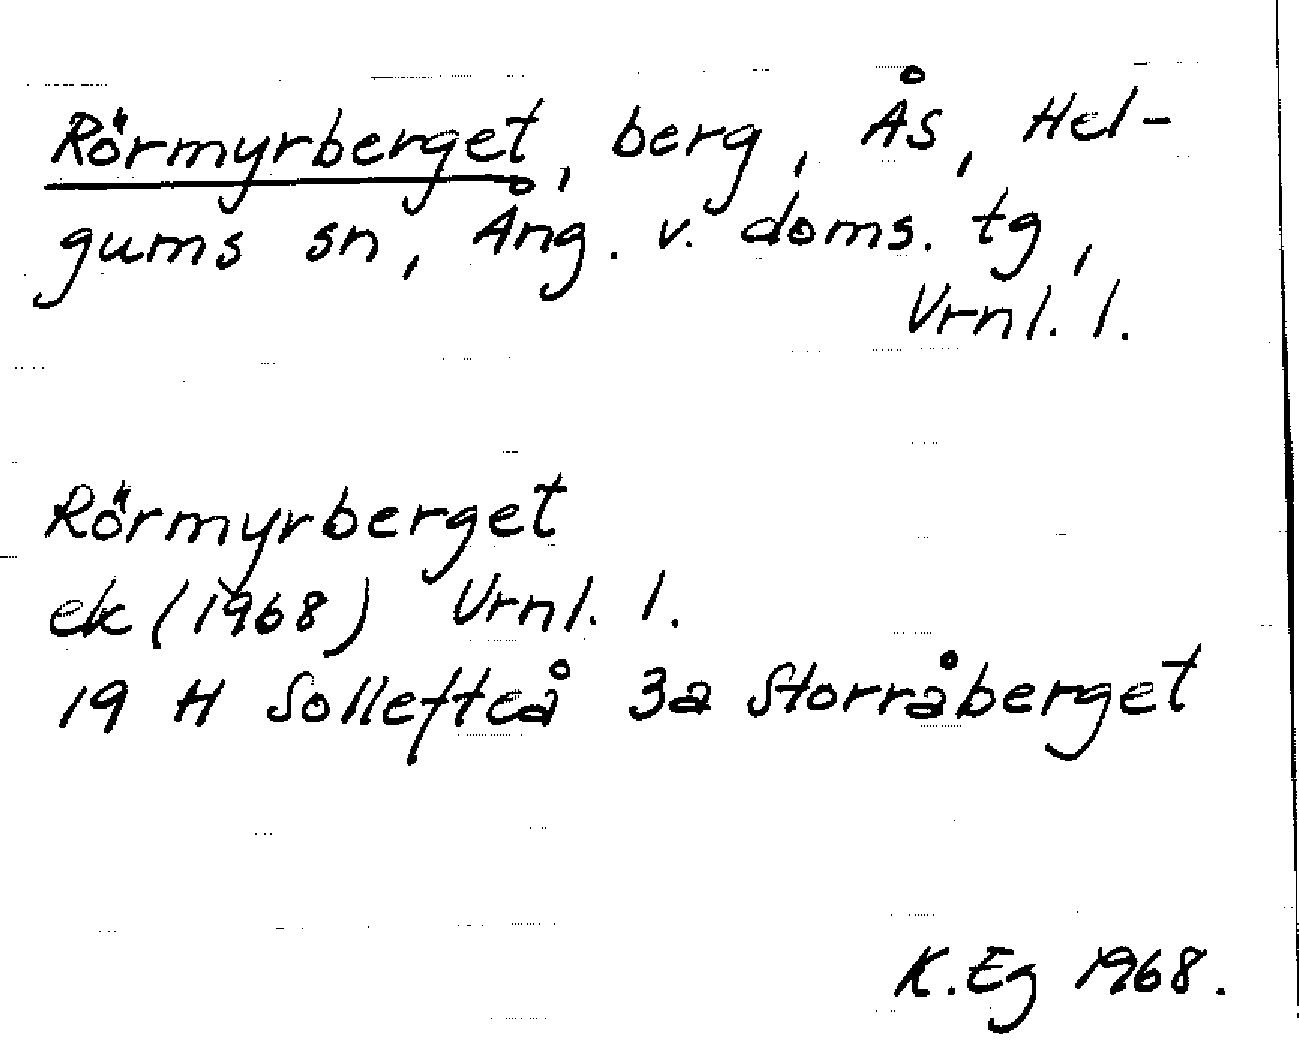 Rörmyrberget, berg, Ås, Hel-
gums sn, Ång. v. doms. tg,
Vrnl. l.
Rörmyrberget
ek (1968) Vrnl. l.
19 H Sollefteå 3a Storråberget
K. Eg 1968.